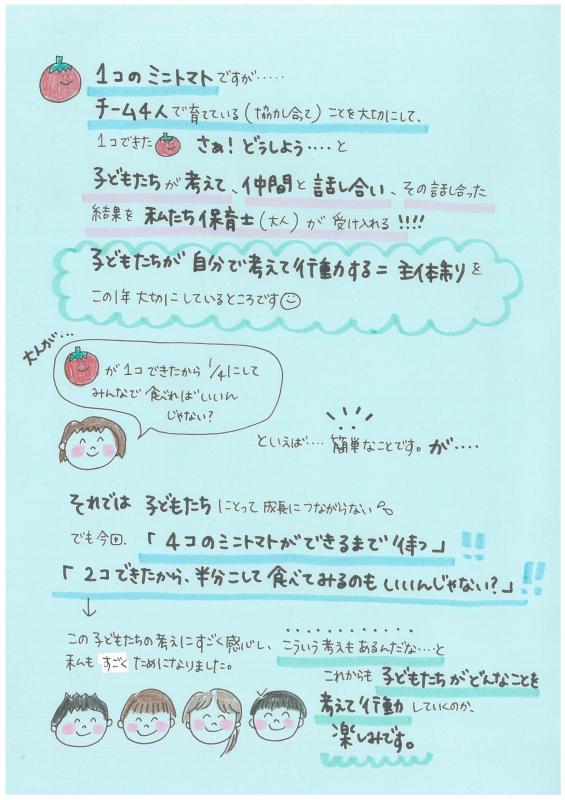 1コのミニトマトですが‥‥‥
チーム4人で育てている(協力し合って)ことを大切にして、
1コできた さぁ!どうしよう‥‥と
子どもたちが考えて、仲間と話し合い、その話し合った
結果を私たち保育士(大人)が受け入れる!!!!
子どもたちが自分で考えて行動する=主体制りを
この1年大切にしているところです
大人が‥‥
が1コできたから1/4にして
みんなで食べればいいん
じゃない?
といえば‥‥簡単なことです。が‥‥
それでは子どもたちにとって成長につながらない
でも今回、「4コのミニトマトができるまで待つ」!!
「2コできたから、半分こして食べてみるのもいいんじゃない?」!!
↓
この子どもたちの考えにすごく感心し、こういう考えもあるんだな‥‥と
私もすごくためになりました。
これからも子どもたちがどんなことを
考えて行動していくのか、
楽しみです。